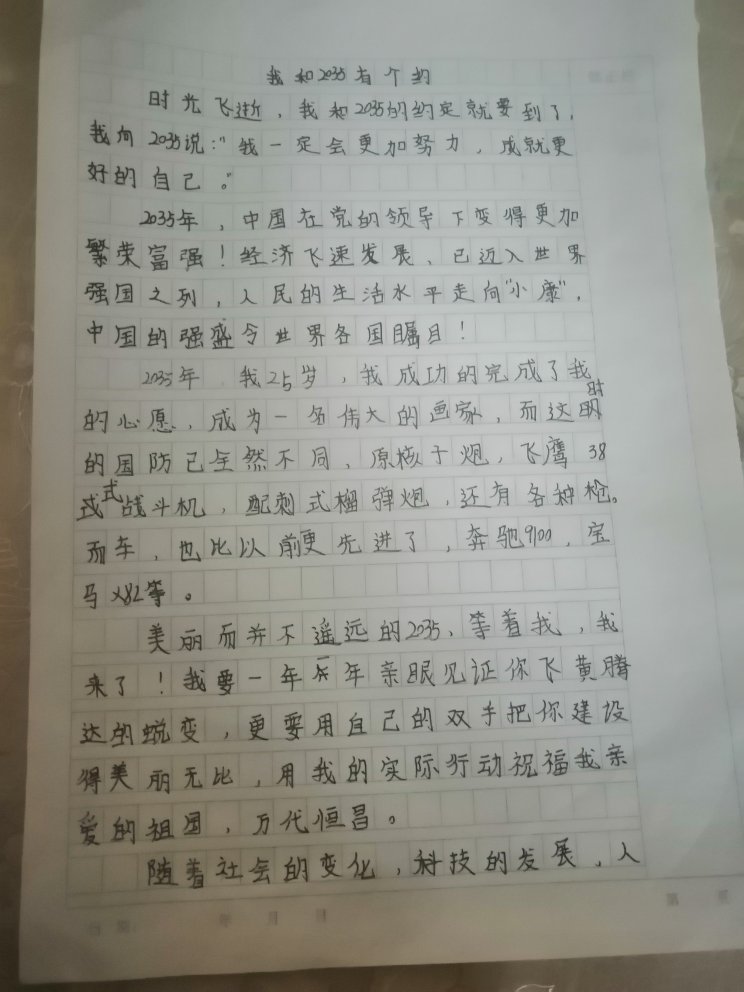 我和2035有个约
时光飞逝，我和2035的约定就要到了，
我向2035说："我一定会更加努力，成就更
好的自己。"
2035年，中国在党的领导下变得更加
繁荣富强！经济飞速发展、已迈入世界
强国之列，人民的生活水平走向"小康"，
中国的强盛令世界各国瞩目！
2035年 我25岁，我成功的完成了我
的心愿，成为一名伟大的画家，而这时
的国防已全然不同、原核子炮，飞鹰38
式战斗机，配刺式榴弹炮，还有各种枪。
而车，也比以前更先进了，奔驰9100，宝
马X82等。
美丽而并不遥远的2035、等着我，我
来了！我要一年一年亲眼见证你飞黄腾
达的蜕变，更要用自己的双手把你建设
得美丽无比，用我的实际行动祝福我亲
爱的祖国，万代恒昌。
随着社会的变化，科技的发展，人
年 月 日
第 页